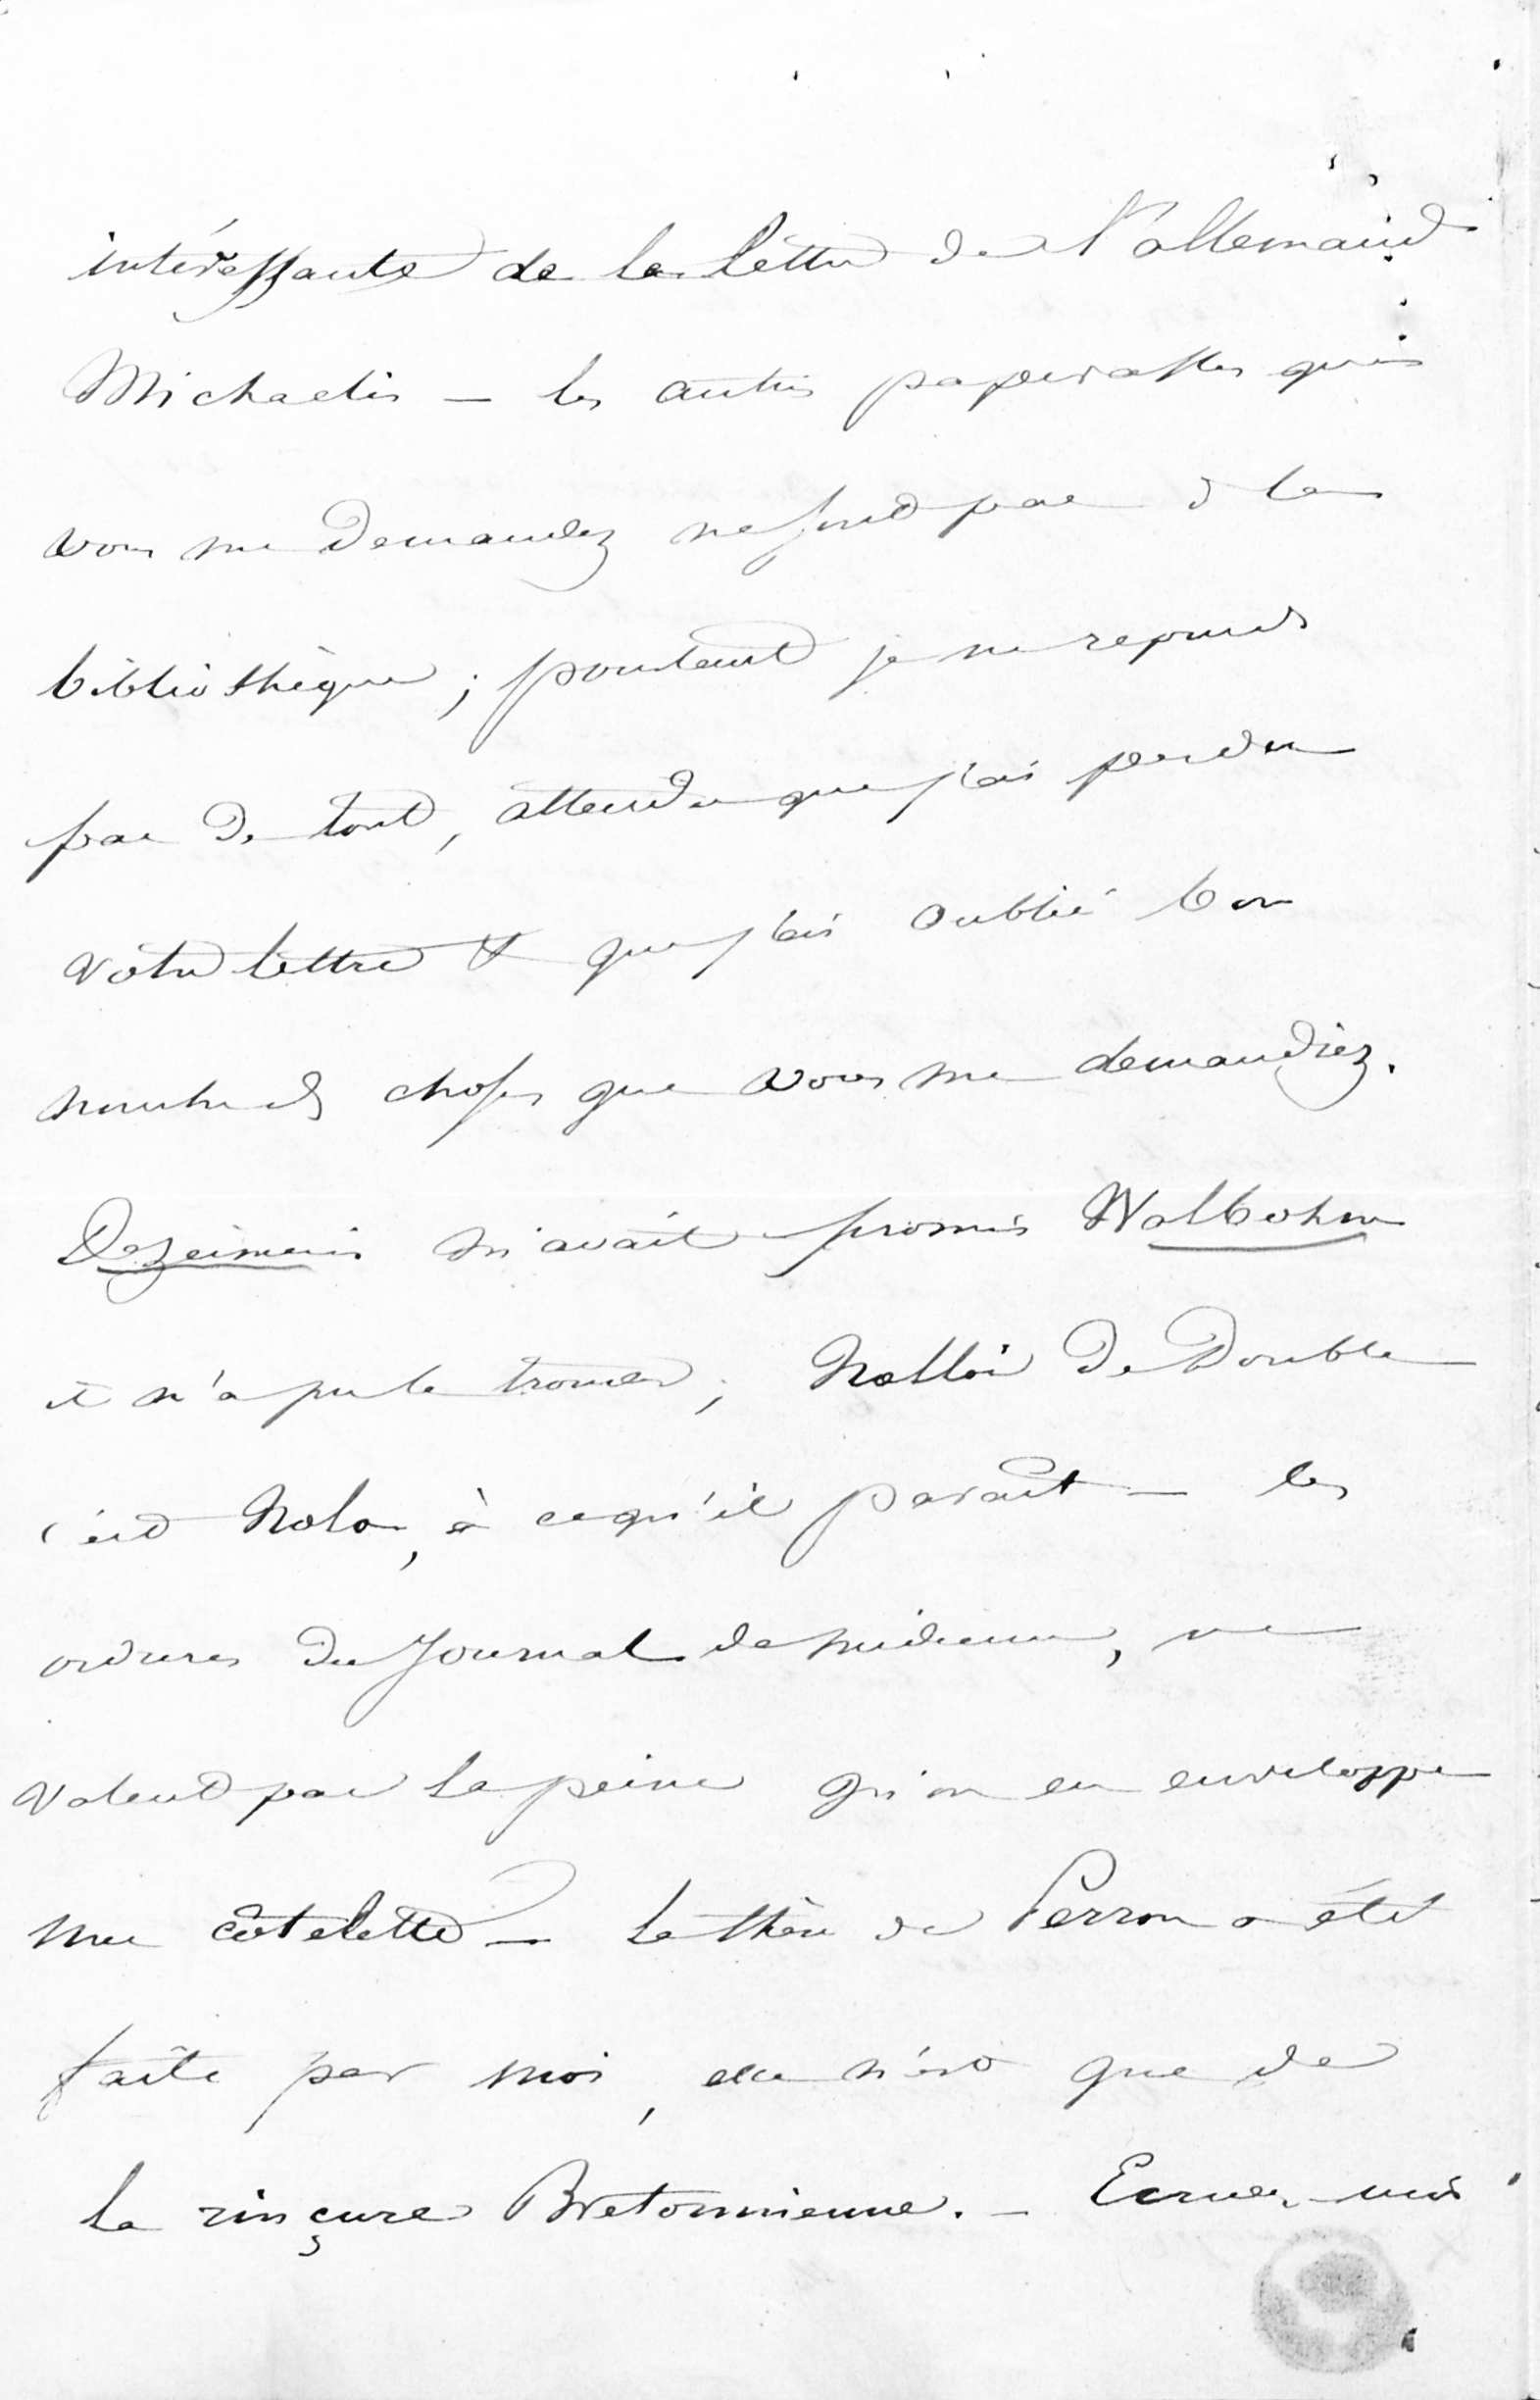 intéressante de la lettre de l'allemand
Michaelis – les autres paperasses que
vous me demandez ne sont pas à la
bibliothèque ; pourtant je ne reponds
pas de tout, attendu que j'ai perdu
votre lettre & que j'ai oublié bon
nombre de choses que vous me demandiez.
Dezeimeris m'avait promis Walbohm
il n'a pu le trouver ; de Double
c'est Nola, à ce qu'il parait – les
ordures du Journal de médecine, ne
valent pas la peine qu'on en enveloppe
une côtelette – la thèse de Perron a été
faite par moi, elle n'est que de
la rinçure Bretonnienne. – Ecrivez moi